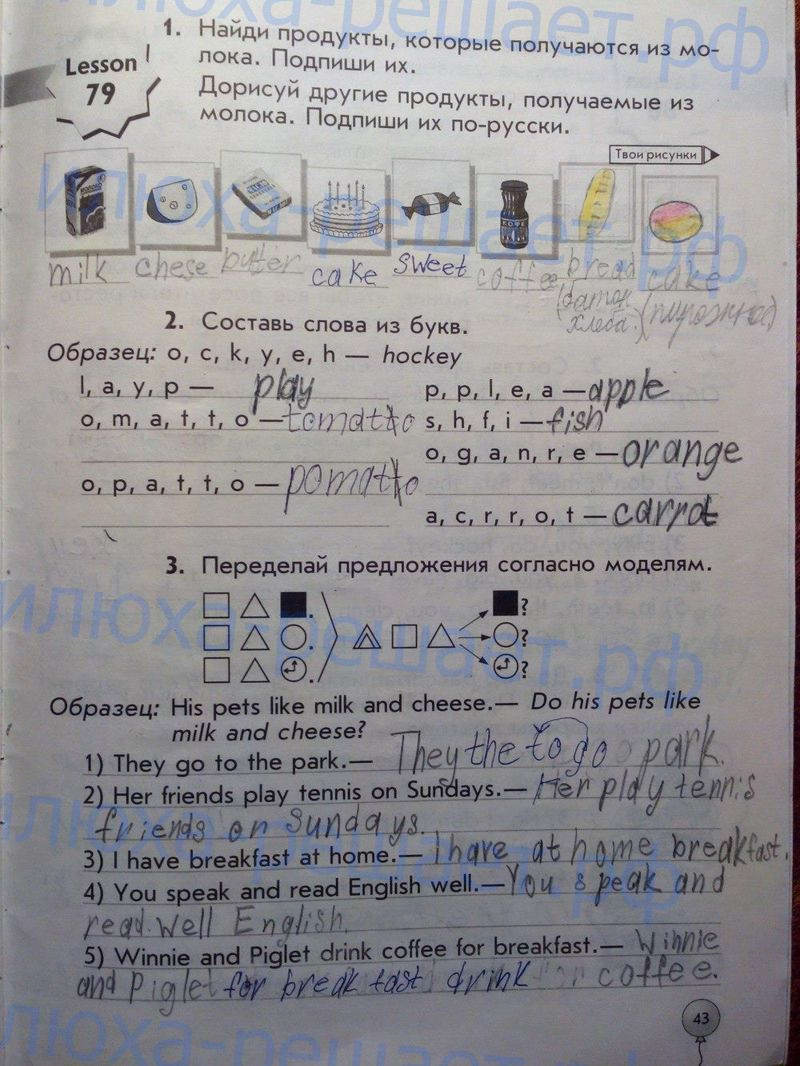 1. Найди продукты, которые получаются из мо-
лока. Подпиши их.
Дорисуй другие продукты, получаемые из
молока. Подпиши их по-русски.
Lesson
79
Твои рисунки
milk chese butter cake sweet coffee bread cake
(батон хлеба.) (пирожное)
2. Составь слова из букв.
Образец: o, c, k, y, e, h — hockey
l, a, y, p — play
p, p, l, e, a — apple
o, m, a, t, t, o — tomatto
s, h, f, i — fish
o, g, a, n, r, e — orange
o, p, a, t, t, o — pomatto
a, c, r, r, o, t — carrot
3. Переделай предложения согласно моделям.
Образец: His pets like milk and cheese.— Do his pets like
milk and cheese?
1) They go to the park.— They the to go park.
2) Her friends play tennis on Sundays.— Her play tennis
friends on Sundays.
3) I have breakfast at home.— i have at home breakfast.
4) You speak and read English well.— You speak and
read well English.
5) Winnie and Piglet drink coffee for breakfast.— Winnie
and Piglet for break fast drink coffee.
43
илюха-решает.рф
илюха-решает.рф
илюха-решает.рф
илюха-решает.рф
илюха-решает.рф